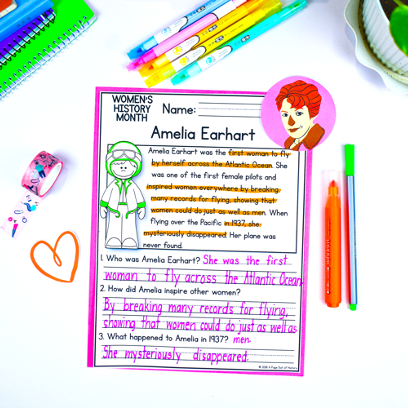 WOMEN'S
HISTORY
MONTH
Name:
Amelia Earhart
Amelia Earhart was the first woman to fly
by herself across the Atlantic Ocean. She
was one of the first female pilots and
inspired women everywhere by breaking
many records for flying, showing that
women could do just as well as men. When
flying over the Pacific in 1937, she
mysteriously disappeared. Her plane was
never found.
1. Who was Amelia Earhart? She was the first
woman to fly across the Atlantic Ocean.
2. How did Amelia inspire other women?
By breaking many records for flying,
showing that women could do just as well as
3. What happened to Amelia in 1937? men.
She mysteriously disappeared.